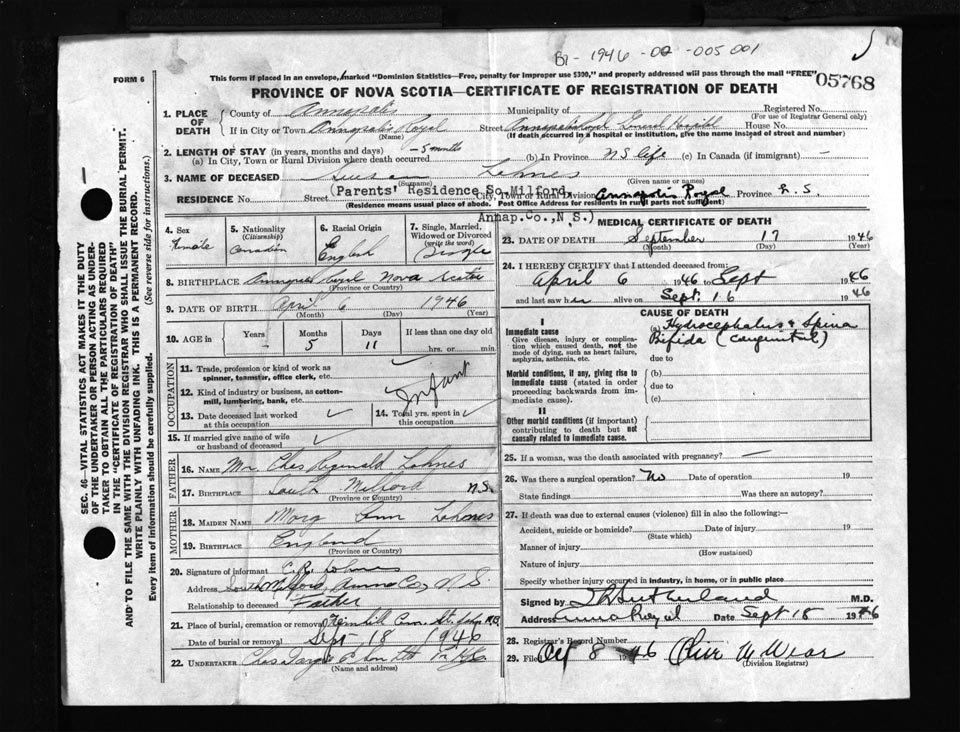 1946-
-005001
FORM 6
This form if placed in an envelope, marked "Dominion Statistics—Free, penalty for improper use $300," and properly addressed will pass through the mail "FREE"
05768
PROVINCE OF NOVA SCOTIA—CERTIFICATE OF REGISTRATION OF DEATH
1. PLACE OF DEATH
County of Annapolis Municipality of Registered No.
(For use of Registrar General only)
If in City or Town Annapolis Royal Street Annapolis Royal General Hospital House No.
(Name) (If death occurred in a hospital or institution, give the name instead of street and number)
2. LENGTH OF STAY (in years, months and days)
(a) In City, Town or Rural Division where death occurred - 5 months (b) In Province NS life (c) In Canada (if immigrant) —
3. NAME OF DECEASED Susan Lohnes
(Surname) (Given name or names)
(Parents' Residence So.Milford,
RESIDENCE No. Street City, Town or Rural Division Annapolis Royal Province N.S.
(Residence means usual place of abode. Post Office Address for residents in rural parts not sufficient)
Annap.Co.,N S.)
4. Sex Female
5. Nationality (Citizenship) Canadian
6. Racial Origin English
7. Single, Married, Widowed or Divorced (write the word) Single
8. BIRTHPLACE Annapolis Royal Nova Scotia
(Province or Country)
9. DATE OF BIRTH April 6 1946
(Month) (Day) (Year)
10. AGE in Years - Months 5 Days 11 If less than one day old hrs. or min.
OCCUPATION
11. Trade, profession or kind of work as spinner, teamster, office clerk, etc.
12. Kind of industry or business, as cotton-mill, lumbering, bank, etc.
Infant
13. Date deceased last worked at this occupation
14. Total yrs. spent in this occupation
15. If married give name of wife or husband of deceased
FATHER
16. NAME Mr. Chas Reginald Lohnes
17. BIRTHPLACE South Milford N.S.
(Province or Country)
MOTHER
18. MAIDEN NAME Ann Lohnes
19. BIRTHPLACE England
(Province or Country)
20. Signature of informant C. R. Lohnes
Address South Milford, Anna Co, N.S.
Relationship to deceased Father
21. Place of burial, cremation or removal
Date of burial or removal Sept 18 1946
22. UNDERTAKER Chas
(Name and address)
MEDICAL CERTIFICATE OF DEATH
23. DATE OF DEATH September 17 1946
(Month) (Day) (Year)
24. I HEREBY CERTIFY that I attended deceased from:
April 6 1946 to Sept 1946
and last saw her alive on Sept. 16 1946
CAUSE OF DEATH
I
Immediate cause
Give disease, injury or complication which caused death, not the mode of dying, such as heart failure, asphyxia, asthenia, etc.
(a) Hydrocephalus & Spina Bifida (congenital)
due to
Morbid conditions, if any, giving rise to immediate cause (stated in order proceeding backwards from immediate cause).
(b)
due to
(c)
II
Other morbid conditions (if important) contributing to death but not causally related to immediate cause.
25. If a woman, was the death associated with pregnancy? —
26. Was there a surgical operation? No Date of operation 19
State findings Was there an autopsy?
27. If death was due to external causes (violence) fill in also the following:—
Accident, suicide or homicide? Date of injury 19
(State which)
Manner of injury
(How sustained)
Nature of injury
Specify whether injury occurred in industry, in home, or in public place
Signed by Sutherland M.D.
Address Anna Royal Date Sept 18 1946
28. Registrar's Record Number
29. Filed Oct 8 1946
(Division Registrar)
SEC. 46—VITAL STATISTICS ACT MAKES IT THE DUTY
OF THE UNDERTAKER OR PERSON ACTING AS UNDER-
TAKER TO OBTAIN ALL THE PARTICULARS REQUIRED
IN THE "CERTIFICATE OF REGISTRATION OF DEATH"
AND TO FILE THE SAME WITH THE DIVISION REGISTRAR WHO SHALL ISSUE THE BURIAL PERMIT.
WRITE PLAINLY WITH UNFADING INK. THIS IS A PERMANENT RECORD.
Every item of information should be carefully supplied. (See reverse side for instructions.)